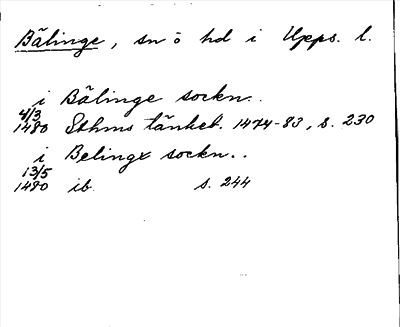 Bälinge, sn o hd i Upps. l.
i Bälinge sockn..
4/3
1480 Sthms tänkeb. 1474-83, s. 230
i Belinge sockn..
13/5
1480 ib. s. 244